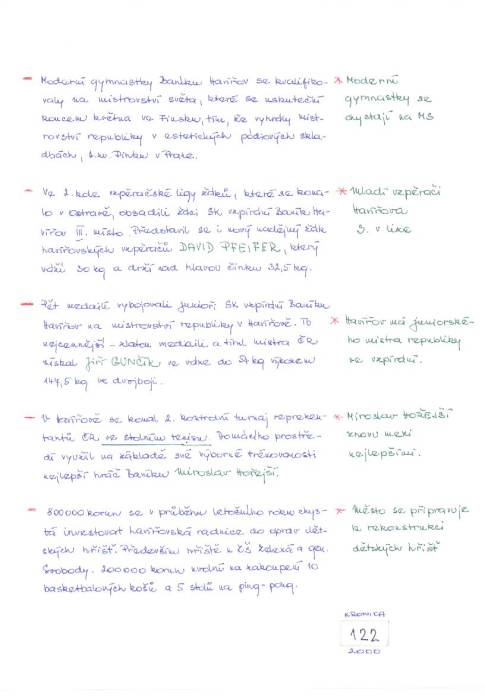 - Moderní gymnastky Baníku Havířov se kvalifiko-
valy na mistrovství světa, které se uskuteční
koncem května ve Finsku, tím, že vyhrály mist-
rovství republiky v estetických pódiových skla-
dbách, s.w. Pinku v Praze.
* Moderní
gymnastky se
chystají na MS
- Ve 2. kole vzpěračské ligy žáků, které se kona-
lo v Ostravě, obsadili žáci SK vzpírání Baník Ha-
vířov III. místo. Představil se i nový nadějný žák
havířovských vzpěračů DAVID PFEIFER, který
váží 30 kg a drží nad hlavou činku 32,5 kg.
* Mladí vzpěrači
Havířova
3. v lize
- Pět medailí vybojovali junioři SK vzpírání Baníku
Havířov na mistrovství republiky v Havířově. Tu
nejcennější - zlatou medaili a titul mistra ČR
získal Jiří GUNČÍK ve váze do 54 kg výkonem
147,5 kg ve dvojboji.
* Havířov má juniorské-
ho mistra republiky
ve vzpírání.
- V Havířově se konal 2. kontrolní turnaj reprezen-
tantů ČR ve stolním tenisu. Domácího prostře-
dí využil na základě své výborné trénovanosti
nejlepší hráč Baníku Miroslav Hořejší.
* Miroslav HOŘEJŠÍ
znovu mezi
nejlepšími.
- 800000 korun se v průběhu letošního roku chys-
tá investovat havířovská radnice do oprav dět-
ských hřišť. Především hřiště u ZŠ Zelená a gen.
Svobody. 200000 korun uvolní na zakoupení 10
basketbalových košů a 5 stolů na ping-pong.
* Město se připravuje
k rekonstrukci
dětských hřišť
KRONIKA
122
2000